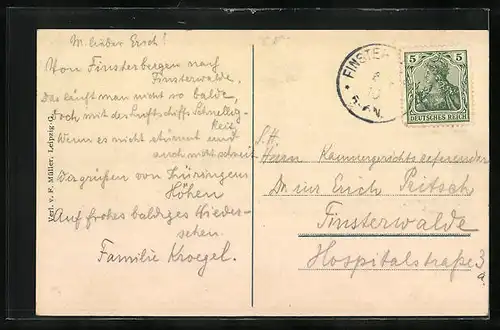 M. lieber Erich!
Von Finsterbergen nach
Finsterwalde.
Das läuft man nicht so balde,
Doch mit der Luftschiffs Schnellig-
keit,
Wenn es nicht stürmt und
auch nicht schneit
Da grüßen von Thüringens
Höhen
Auf frohes baldiges Wieder-
sehen.
Familie Kroegel.
Verl. v. F. Müller, Leipzig-G.
FINSTE
5
5
DEUTSCHES REICH
S. H.
Herrn Kammergerichtsreferendar
Dr. iur Erich Peitsch
Finsterwalde
Hospitalstraße 3
a.